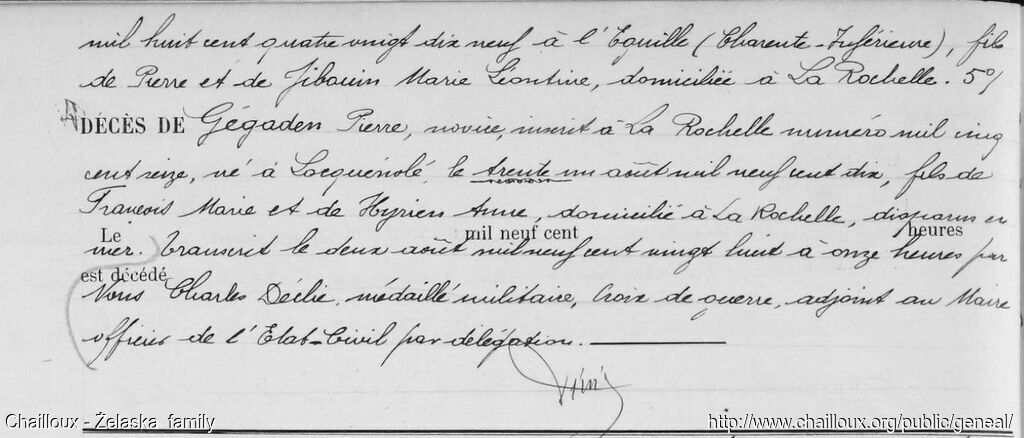 mil huit cent quatre vingt dix neuf à l'Eguille (Charente-Inférieure), fils
de Pierre et de Jibouin Marie Léontine, domiciliée à La Rochelle. 5°/
DÉCÈS DE Gégaden Pierre, novice, inscrit à La Rochelle numéro mil cinq
cent seize, né à Locquénolé, le trente un août mil neuf cent dix, fils de
François Marie et de Hyrien Anne, domicilié à La Rochelle, disparus en
Le mil neuf cent heures
mer. Transcrit le deux août mil neuf cent vingt huit à onze heures par
est décédé
Nous Charles Délie, médaillé militaire, Croix de guerre, adjoint au Maire
officier de l'Etat-Civil par délégation.
Chailloux - Żelaska family
http://www.chailloux.org/public/geneal/